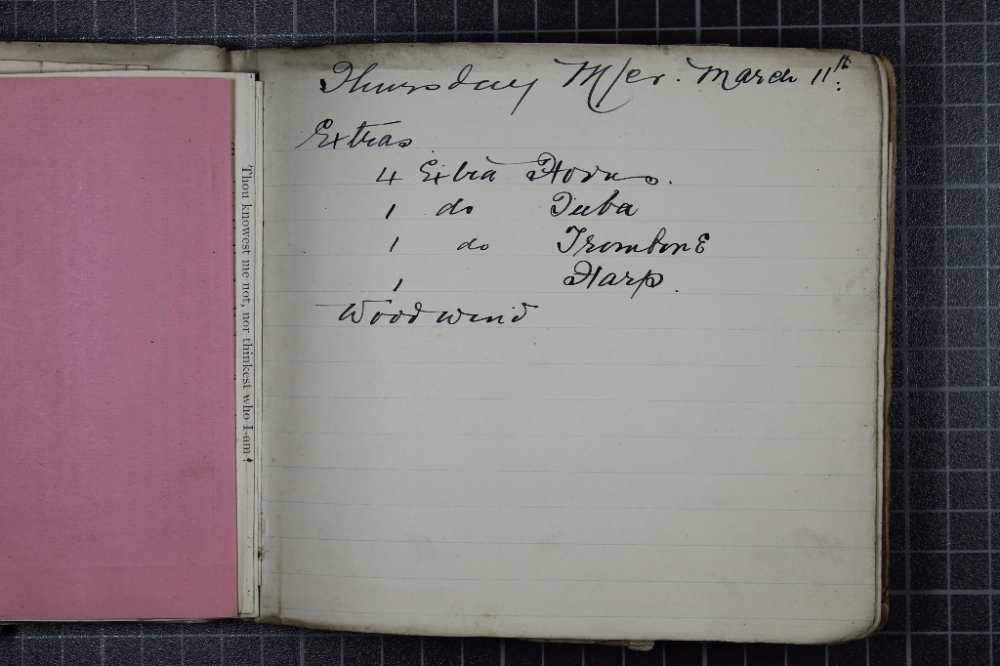 Thursday M/cr. March 11th.
Extras
4 Extra Horns.
1 do Tuba
1 do Trombone
1 Harp.
Woodwind
Thou knowest me not, nor thinkest who I am!